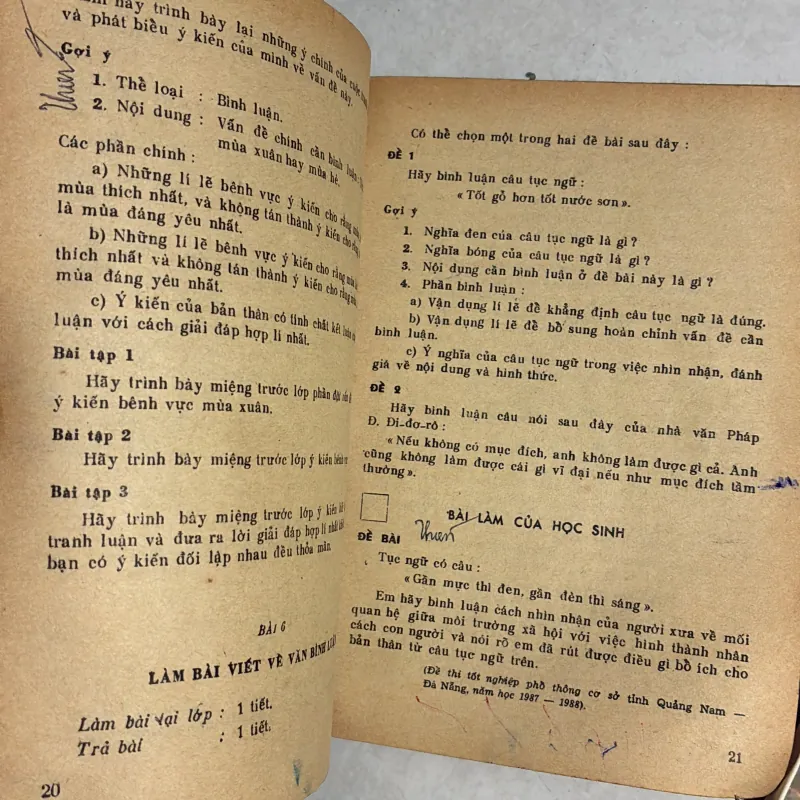 hãy trình bày lại những ý chính của cuộc
và phát biểu ý kiến của mình về vấn đề này.
Gợi ý
Thien
1. Thể loại : Bình luận.
2. Nội dung : Vấn đề chính cần bình luận :
mùa xuân hay mùa hè.
Các phần chính :
a) Những lí lẽ bênh vực ý kiến cho rằng mùa
mùa thích nhất, và không tán thành ý kiến cho rằng
là mùa đáng yêu nhất.
b) Những lí lẽ bênh vực ý kiến cho rằng mùa
thích nhất và không tán thành ý kiến cho rằng mùa
mùa đáng yêu nhất.
c) Ý kiến của bản thân có tính chất kết luận
luận với cách giải đáp hợp lí nhất.
Bài tập 1
Hãy trình bày miệng trước lớp phần đặt vấn đề
ý kiến bênh vực mùa xuân.
Bài tập 2
Hãy trình bày miệng trước lớp ý kiến bênh vực
Bài tập 3
Hãy trình bày miệng trước lớp ý kiến
tranh luận và đưa ra lời giải đáp hợp lí nhất
bạn có ý kiến đối lập nhau đều thỏa mãn.
BÀI 6
LÀM BÀI VIẾT VỀ VĂN BÌNH LUẬN
Làm bài tại lớp : 1 tiết.
Trả bài : 1 tiết.
20
Có thể chọn một trong hai đề bài sau đây :
ĐỀ 1
Hãy bình luận câu tục ngữ :
« Tốt gỗ hơn tốt nước sơn ».
Gợi ý
1. Nghĩa đen của câu tục ngữ là gì ?
2. Nghĩa bóng của câu tục ngữ là gì ?
3. Nội dung cần bình luận ở đề bài này là gì ?
4. Phần bình luận :
a) Vận dụng lí lẽ để khẳng định câu tục ngữ là đúng.
b) Vận dụng lí lẽ để bổ sung hoàn chỉnh vấn đề cần
bình luận.
c) Ý nghĩa của câu tục ngữ trong việc nhìn nhận, đánh
giá về nội dung và hình thức.
ĐỀ 2
Hãy bình luận câu nói sau đây của nhà văn Pháp
Đ. Đi-đơ-rô :
« Nếu không có mục đích, anh không làm được gì cả. Anh
cũng không làm được cái gì vĩ đại nếu như mục đích tầm
thường ».
BÀI LÀM CỦA HỌC SINH
Thien
ĐỀ BÀI
Tục ngữ có câu :
« Gần mực thì đen, gần đèn thì sáng ».
Em hãy bình luận cách nhìn nhận của người xưa về mối
quan hệ giữa môi trường xã hội với việc hình thành nhân
cách con người và nói rõ em đã rút được điều gì bổ ích cho
bản thân từ câu tục ngữ trên.
(Đề thi tốt nghiệp phổ thông cơ sở tỉnh Quảng Nam —
Đà Nẵng, năm học 1987 — 1988).
21